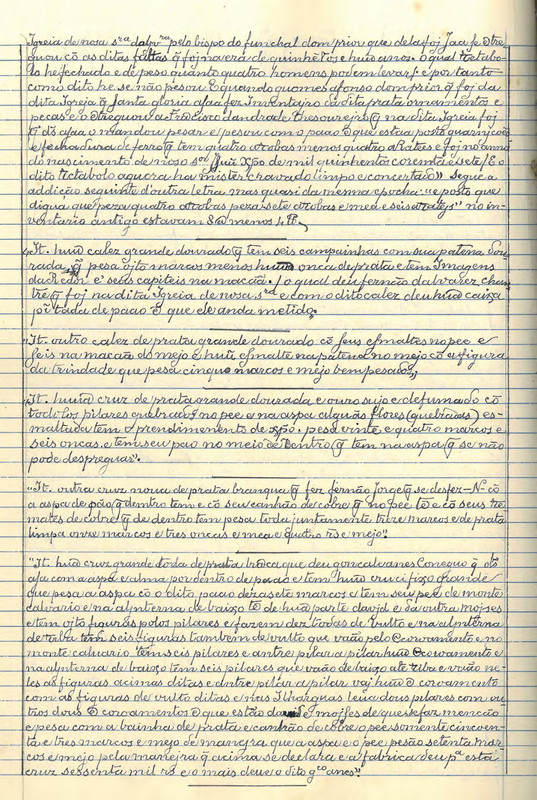 Igreia de nosa sra dobra pelo bispo do funchal dom prior que dela foj
com as ditas faltas q̃ foj na era de quinhẽtos e huũ anos. O qual
lo he fechado e de peso quanto quatro homens podem levar, e por tanto
como dito he se não pesou. E quando gomes afonso dom prior q̃ foj da
dita Igreja q̃ santa gloria aja fez Inventajro da dita prata ornamentos e
pecas e o entregou a Francisco dandrade thesoureiro q̃ na dita Igreia foj
q̃ ds aja o mandou pesar e pesou com o paao e que esta posto
e fechadura de ferro q̃ tem quatro arobas menos quatro aRates e foj no ano
do nascimento de noso sor Jhũ xpo de mil quinhentos coremta e sete / E o
dito aguora ha mister cravado limpo e concertado» Segue a
addição seguinte d'outra letra mas quasi da mesma epocha: "e posto que
digua que peza quatro arrobas peza sete arobas e mea e seis" no in-
ventario antigo estavam 8@ menos 4
"It. huũ calez grande dourado q̃ tem seis campainhas com sua patena dou-
rada q̃ pesa ojto marcos menos huũa onca de prata e tem Imagens
e seus capiteis na macaã. / o qual deu fernão dalvarez chan-
tre q̃ foj na dita Igreia de nosa sra e com o dito calez deu huũa caixa
pĩtada de paao ẽ que ele anda metido."
"It. outro calez de prata grande dourado cõ seus esmaltes no pee e
seis na macaã do mejo e huũ esmalte na patena no mejo cõ a figura
da trindade que pesa cinquo marcos e mejo bem pesados,
"It. huũa cruz de prata grande dourada e ouro sujo e defumado cõ
todolos pilares quebrados no pee e na aspa alguãs flores (quebradas) es-
maltada tem o prendimento de xpõ. pesa vinte e quatro marcos e
seis oncas. e tem seu pao no meio de dentro q̃ tem na aspa q̃ se não
pode despreguar".
"It. outra cruz noua de prata branqua q̃ fez fernão Jorge q̃ se desfez — N. cõ
a aspa de pão q̃ dentro tem e cõ seu canhão de cobre q̃ no pee tẽ e cõ seus tre-
mates de cobre q̃ de dentro tem pesa toda juntamente treze marcos e de prata
limpa onze marcos e tres oncais e mea e quatro rs e mejo".
"It. huũa cruz grande toda de prata brãca que deu goncalveanes Conego q̃ ds
aja com a aspa e alma por dentro de paao e tem huũ crucifixo grande
que pesa a aspa cõ o dito paao dezasete marcos e tem seu pee de monte
calvario e na alĩnterna de baixo tẽ de huũa parte davjd e da outra mojses
e tem ojto figuras polos pilares e fazem dez todas de vulto e na alĩnterna
de riba tem seis figuras tambem de vulto que vaão pelo coroamento e no
monte caluario tem seis pilares e antre pilar a pilar huũ coroamento e
na alĩnterna de baixo tem seis pilares que vaão de baixo ate riba e vaão ne-
les as figuras acimas ditas e antre pilar a pilar vaj huũ coroamento
com as figuras de vulto ditas e nas Ilharguas leua dous pilares com ou-
tros dous coroamentos ẽ que estão davjd e mojses de que se faz mencão
e pesa com a bainha de prata e canhão de cobre o pee somente cincoen-
ta e tres marcos e mejo de maneyra que a aspa e o pee pesão setenta mar-
cos e mejo pela maneira q̃ acima se declara e a fabrica deu pa esta
cruz sessenta mil rs e o mais deu o dito gco anes".